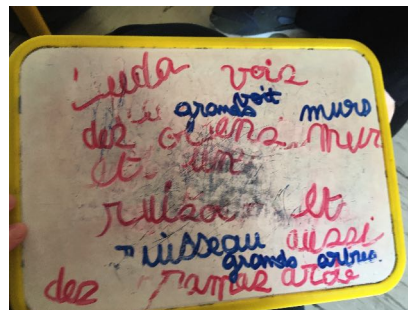 Luda vois
voit
grands murs
des grens mur
et un
ruiso et
ruisseau aussi
grands arbres.
des ramez arde